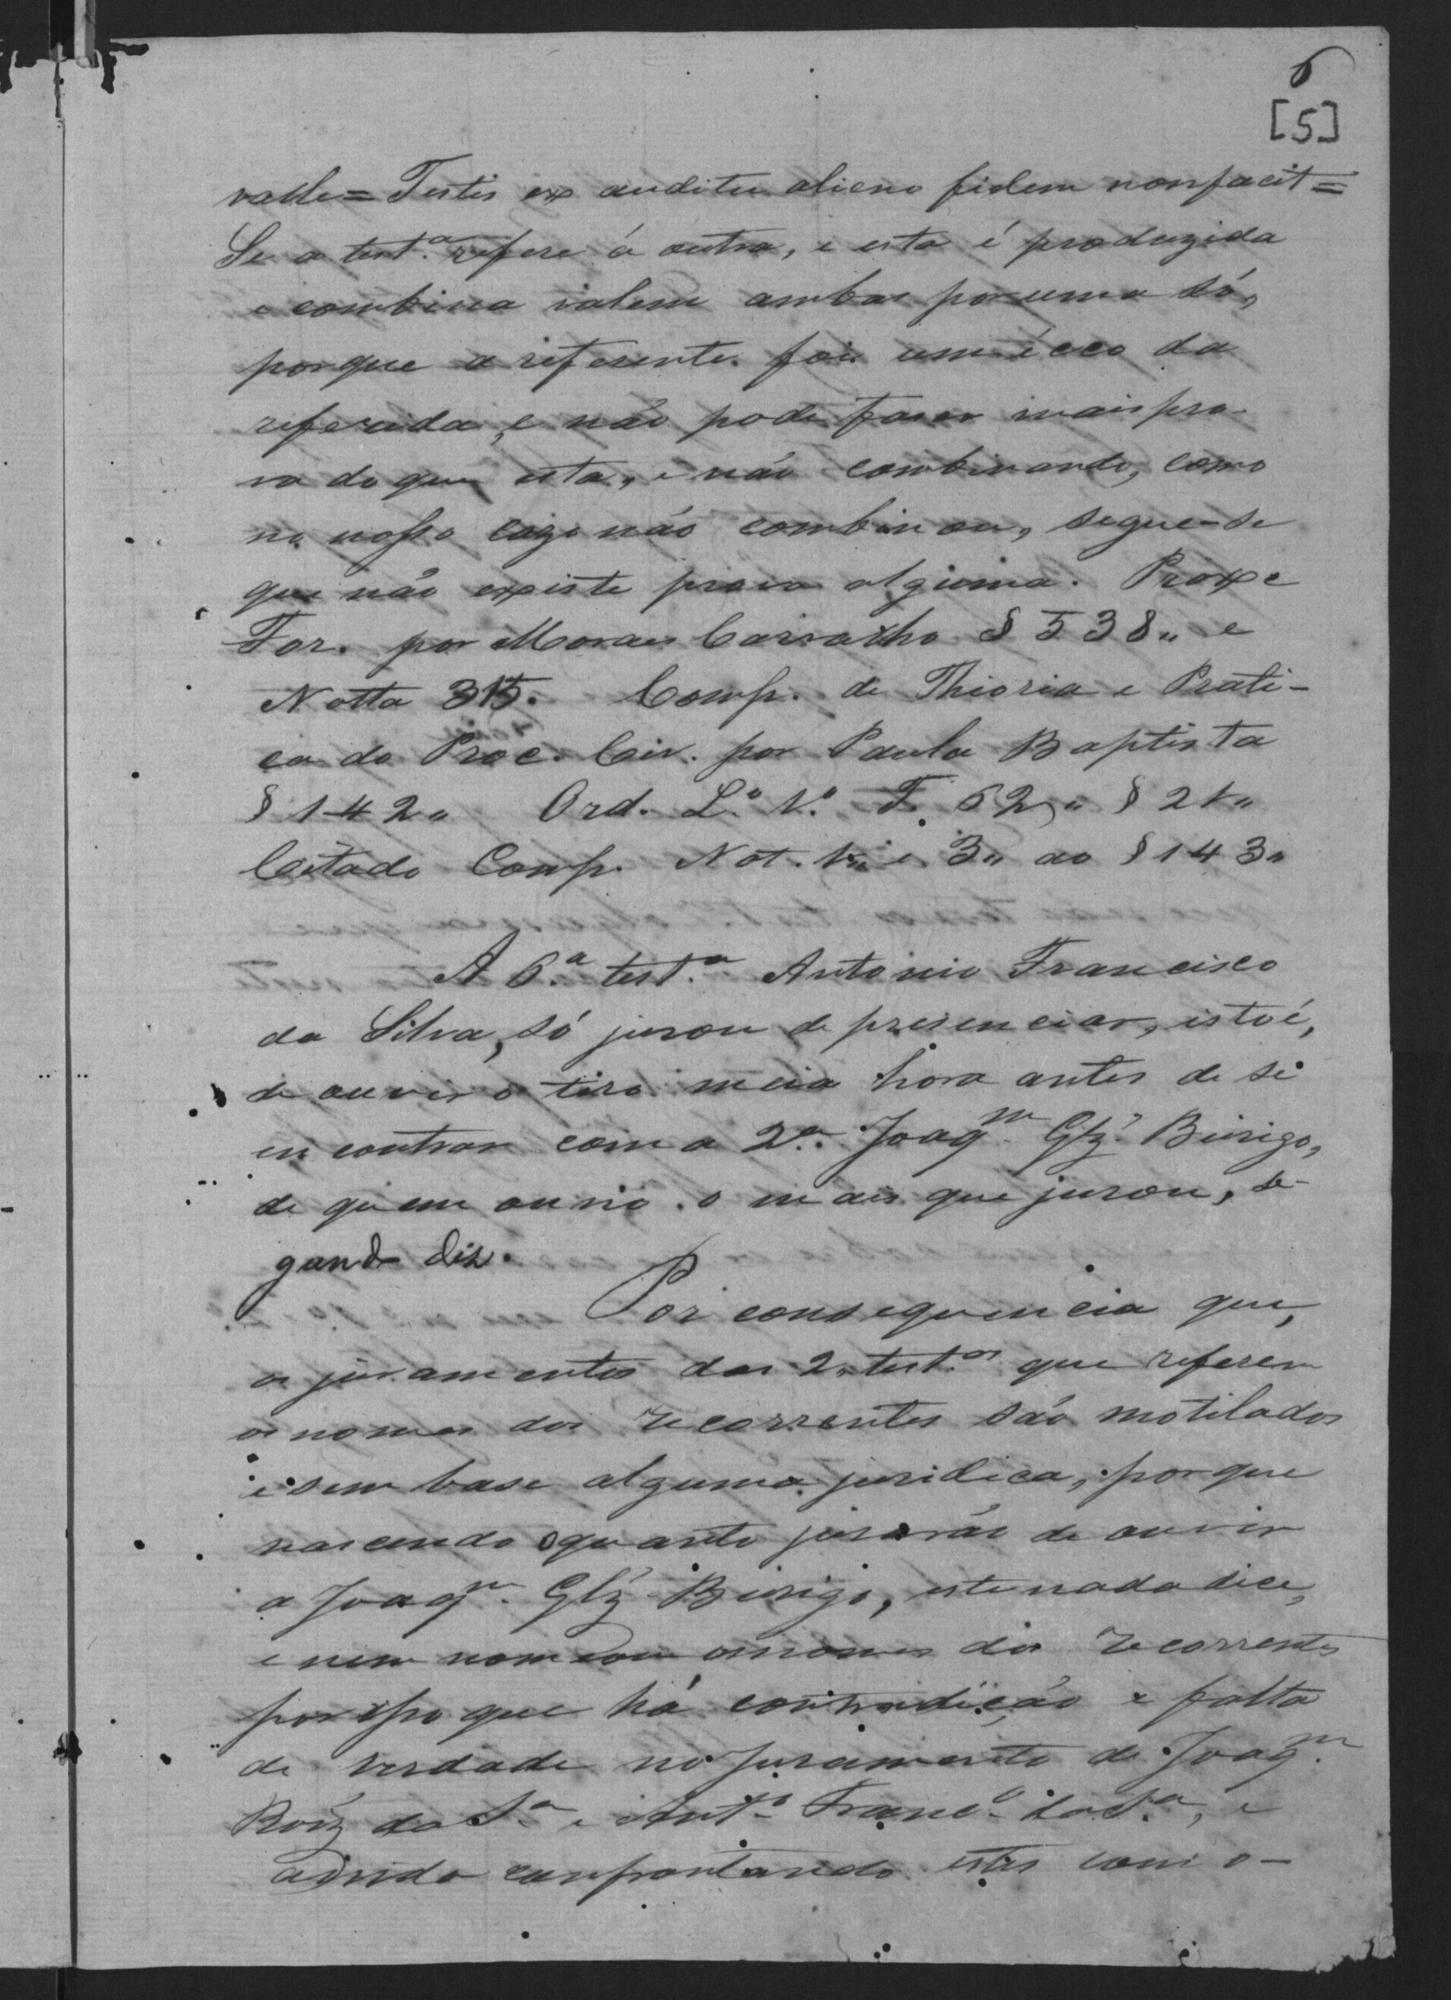 6
[5]
valle = Testis ex auditu alieno fidem non facit =
Se a test.ª refere á outra, e esta é produzida
e combina valem ambas por uma só,
porque a referente foi um écco da
referida, e não pode faser mais pro-
va do que esta, e não combinando, como
no nosso cazo não combinou, segue-se
que não existe prova alguma. Praxe
For. por Moraes Carvalho § 538,, e
Notta 315. Comp. de Thioria e Prati-
ca do Proc. Civ. por Paula Baptista
§ 142,, Ord. L.º 1.º T. 62,, § 21,,
Citado Comp. Not. 1,, e 3,, ao § 143,,
A 6.ª test.ª Antonio Francisco
da Silva, só jurou de presenciar, isto é,
de ouvir o tiro meia hora antes de se
encontrar com a 2ª. Joaqm. Glz' Birigo,
de quem ouvio o mais que jurou, se-
gundo diz.
Por consequencia que,
os juramentos das 2,, test.as que referem
os nomes dos recorrentes são motilados
e sem base alguma juridica, porque
nascendo o quanto jurarão de ouvir
a Joaqm. Glz' Birigo, este nada dice,
e nem nomeou os nomes dos recorrentes
por isso que há contradicção e falta
de verdade no juramento de Joaqm.
Roiz da S.ª e Ant.º Franc.º da S.ª, e
ainda confrontando estes com o-